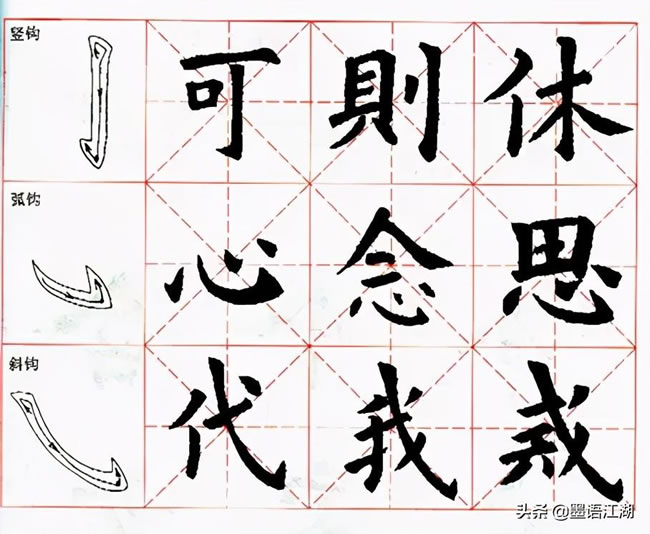 竖钩 可 則 休
弧钩 心 念 思
斜钩 代 我 戒
头条 @墨语江湖